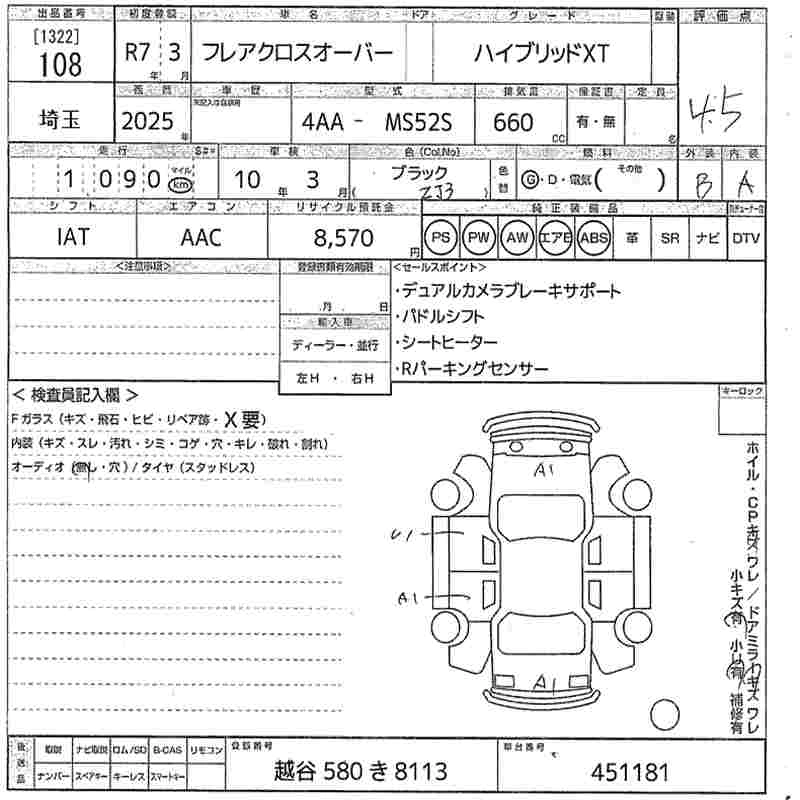 出品番号 初度登録 車名 ドア グレード 型装 評価点
[1322]
108 R7年 3月 フレアクロスオーバー ハイブリッドXT 4.5
埼玉 2025年 車歴 未記入は自家用 型式 4AA - MS52S 排気量 660 CC 保証書 有・無 定員 名
走行 車検 色(Col,No) 燃料 外装 内装
1 0 9 0 マイル km 10年 3月 ブラック ( ZJ3 ) 色替 G・D・電気( その他 ) B A
シフト エアコン リサイクル預託金 純正装備品
IAT AAC 8,570円 PS PW AW エアB ABS 革 SR ナビ DTV
<注意事項> 登録書類有効期限 <セールスポイント>
月 日
・デュアルカメラブレーキサポート
輸入車 ・パドルシフト
ディーラー・並行 ・シートヒーター
左H ・ 右H ・Rパーキングセンサー
< 検査員記入欄 > キーロック
Fガラス(キズ・飛石・ヒビ・リペア跡・X要)
内装(キズ・スレ・汚れ・シミ・コゲ・穴・キレ・破れ・割れ)
オーディオ(無し・穴)/タイヤ(スタッドレス)
A1
U1
A1
A1
ホイル・CPキズワレ/ドアミラーキズワレ
小キズ有 小U有 補修有
後送品 取説 ナビ取説 ロム/SD B-CAS リモコン 登録番号 車台番号
ナンバー スペアキー キーレス スマートキー 越谷 580 き 8113 451181